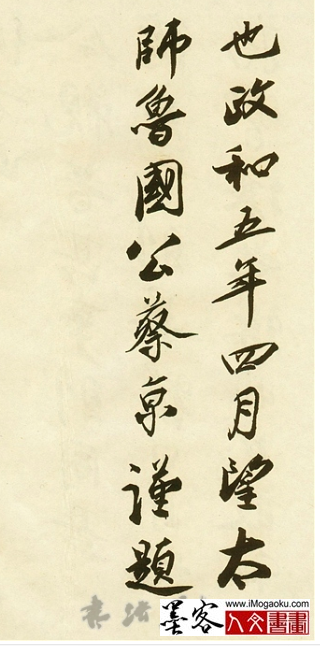 也政和五年四月望太
師魯國公蔡京謹題
www.iMogaoku.com
墨客
人文書畫